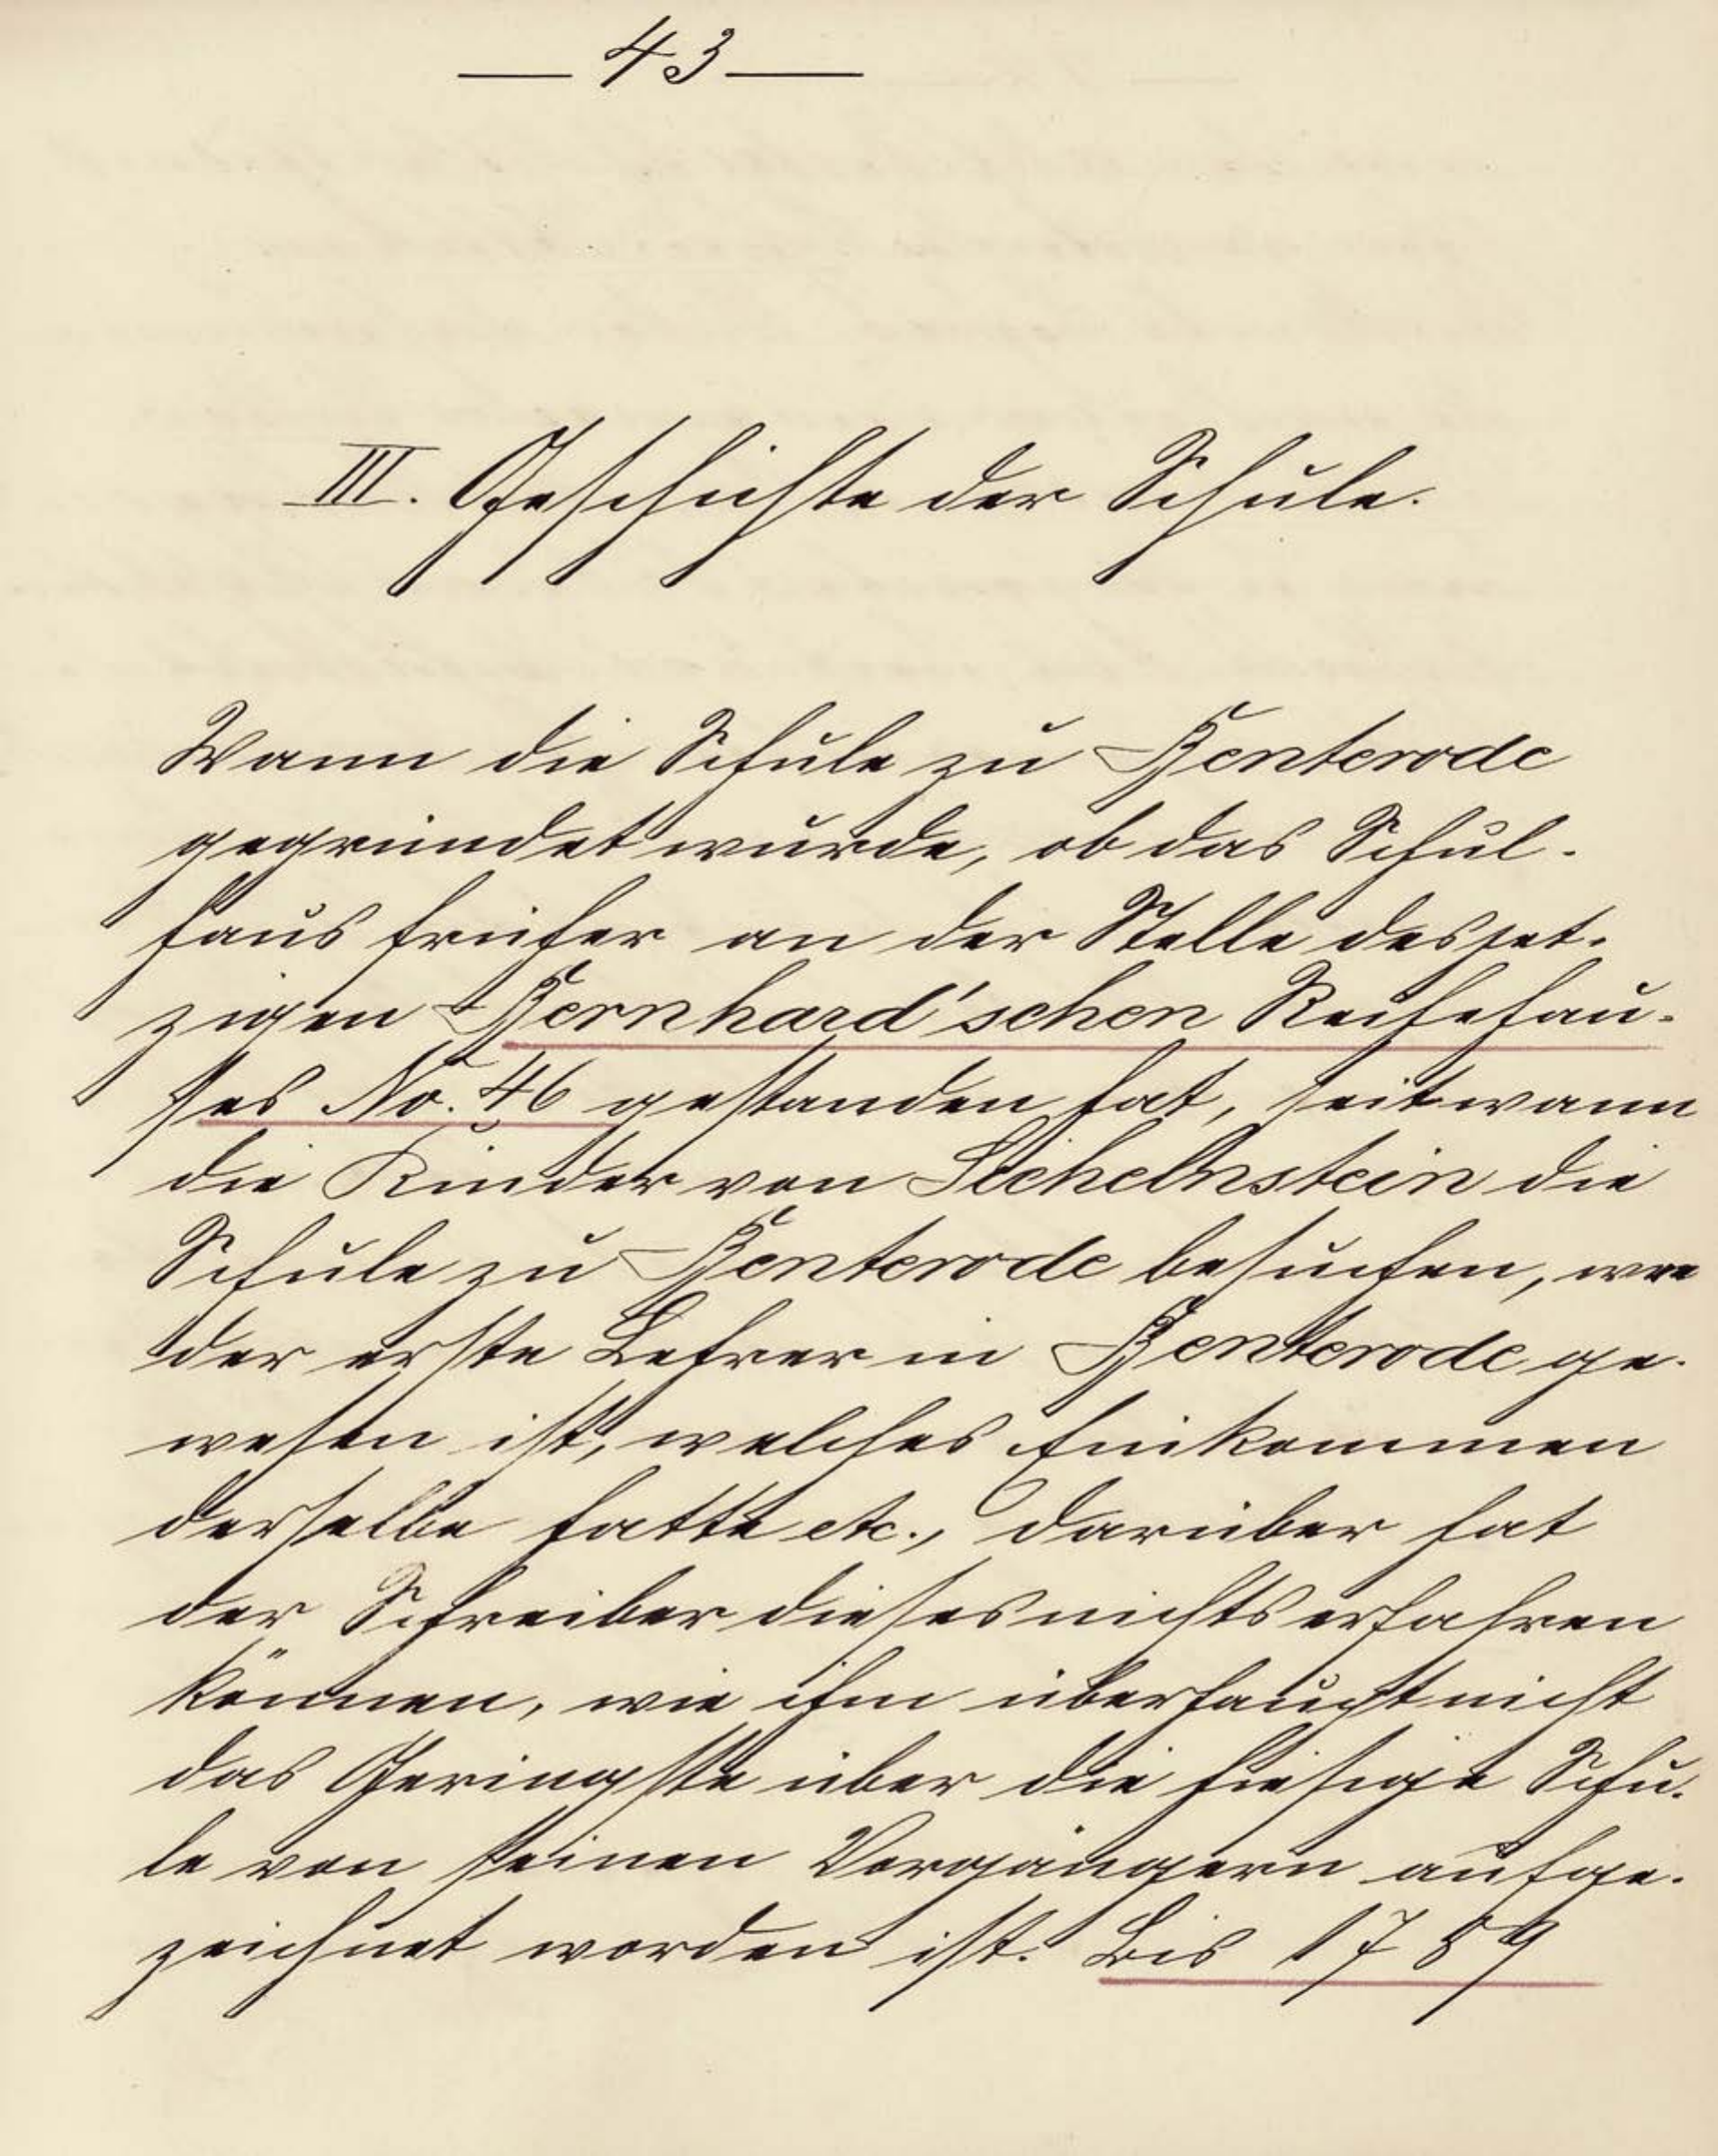 — 43 —
III. Geschichte der Schule.
Wann die Schule zu Benterode
gegründet wurde, ob das Schul-
haus früher an der Stelle des jet-
zigen Bernhard'schen Reihehau-
ses No. 46 gestanden hat, seit wann
die Kinder von Sichelnstein die
Schule zu Benterode besuchen, wer
der erste Lehrer in Benterode ge-
wesen ist, welches Einkommen
derselbe hatte etc., darüber hat
der Schreiber dieses nichts erfahren
können, wie ihm überhaupt nicht
das Geringste über die hiesige Schu-
le von seinen Vorgängern aufge-
zeichnet worden ist. Bis 1789